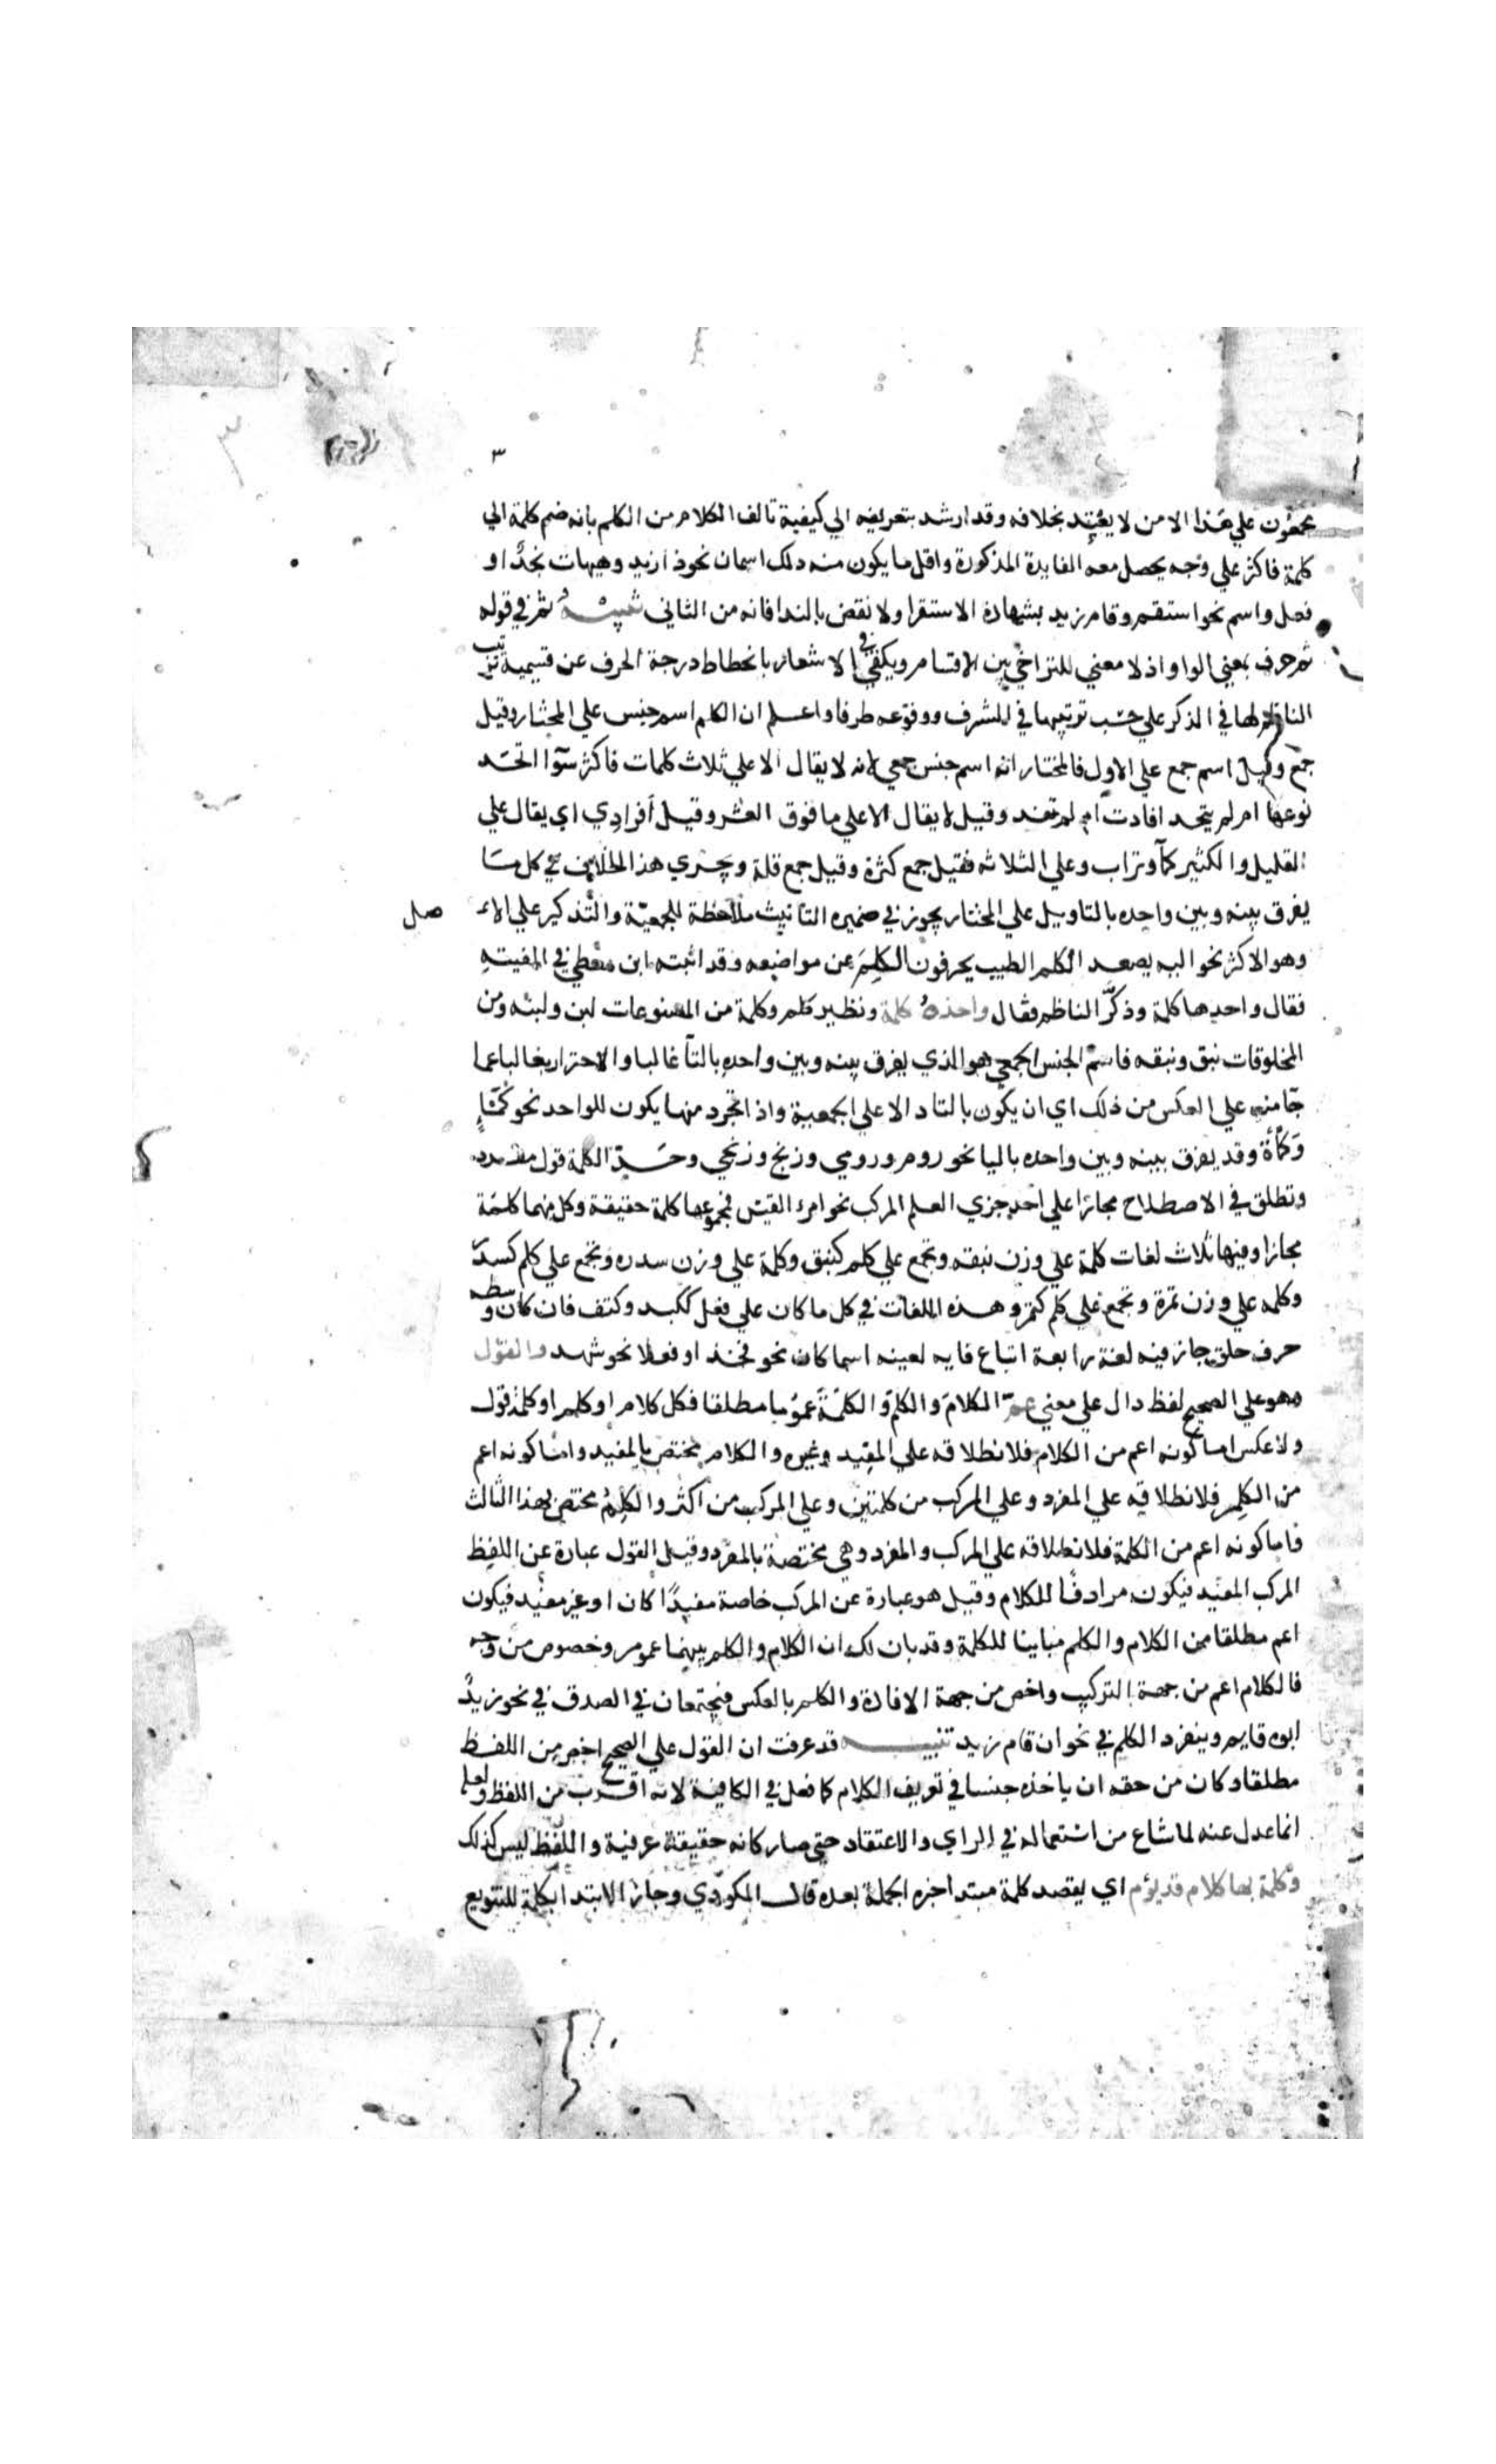 ٣
٣
مجمعون علي هذا الا من لا يعتد بخلافه وقد ارشد بتعريفه الي كيفية تالف الكلام من الكلم بانه ضم كلمة الي
كلمة فاكثر علي وجه يحصل معه الفايدة المذكورة واقل ما يكون منه ذلك اسمان نحو ذا زيد وهيهات نجد او
فعل واسم نحو استقم وقام زيد بشهادة الاستقرا ولا نقض بالندا فانه من الثاني تنبيه ثم في قوله
ثم حرف بمعني الواو اذ لا معني للتراخي بين الاقسام ويكفي في الاشعار بانحطاط درجة الحرف عن قسيميه ترتيب
الناظم لها في الذكر علي حسب ترتيبها في الشرف ووقوعه طرفا واعلم ان الكلم اسم جنس علي المختار وقيل
جمع وقيل اسم جمع علي الاول فالمختار انه اسم جنس جمعي لانه لا يقال الا علي ثلاث كلمات فاكثر سوآ اتحد
نوعها ام لم يتحد افادت ام لم تفد وقيل لا يقال الا علي ما فوق العشر وقيل أفرادي اي يقال علي
القليل والكثير كمآ وتراب وعلي الثلاثه فقيل جمع كثرة وقيل جمع قلة ويجري هذا الخلاف في كل ما
يفرق بينه وبين واحده بالتا وعلي المختار يجوز في ضميره التأنيث ملاحظة للجمعيّة والتّذكير علي الاء صل
وهو الاكثر نحو اليه يصعد الكلم الطيب يحرفون الكلِمَ عن مواضعه وقد اثبته ابن معطي في الفيته
فقال واحدها كلمة وذكّر الناظم فقال واحده كلمة ونظير كلم وكلمة من المصنوعات لبن ولبنه ومن
المخلوقات نبق ونبقه فاسم الجنس الجمعي هو الذي يفرق بينه وبين واحده بالتآ غالبا والاحتراز بغالبا عما
جآ منه علي العكس من ذلك اي ان يكون بالتا دالا علي الجمعية واذا تجرد منها يكون للواحد نحو كمْئٍ
وَكمأة وقد يفرق بينه وبين واحده باليا نحو روم ورومي وزنج وزنجي وحدّ الكلمة قول مفرد
وتطلق في الاصطلاح مجازا علي احد جزي العلم المركب نحو امرء القيس فمجموعها كلمة حقيقة وكل منهما كلمة
مجازا وفيها ثلاث لغات كلمة علي وزن نبقه وتجمع علي كلم كنبق وكلمة علي وزن سدره وتجمع علي كلم كسدر
وكلمه علي وزن تمرة وتجمع علي كلم كتمر وهذه اللغات في كل ما كان علي فعل ككبد وكتف فان كان وسطه
حرف حلق جاز فيه لغة رابعة اتباع فايه لعينه اسما كان نحو فخذ او فعلا نحو شهد والقول
وهو علي الصحيح لفظ دال علي معني عمّ الكلامَ والكلمَ والكلمَةَ عمُوما مطلقا فكل كلام او كلم او كلمة قول
ولا عكس اما كونه اعم من الكلام فلانطلاقه علي المفيد وغيره والكلام مختص بالمفيد واما كونه اعم
من الكلِم فلانطلاقه علي المفرد وعلي المركب من كلمتين وعلي المركب من اكثر والكلِمُ مختص بهذا الثالث
فاما كونه اعم من الكلمة فلانطلاقه علي المركب والمفرد وهي مختصة بالمفرد وقيل القول عبارة عن اللفظ
المركب المفيد فيكون مرادفًا للكلام وقيل هو عبارة عن المركب خاصة مفيدًا كان او غير مفيد فيكون
اعم مطلقا من الكلام والكلم مباينا للكلمة وقد بان لك ان الكلام والكلم بينهما عموم وخصوص من وجه
فالكلام اعم من جهة التركيب واخص من جهة الافادة والكلم بالعكس فيجتمعان في الصدق في نحو زيدٌ
ابوه قايم وينفرد الكلم في نحو ان قام زيد تنبيه قد عرفت ان القول علي الصحيح اخص من اللفظ
مطلقا وكان من حقه ان ياخذه جنسا في تعريف الكلام كما فعل في الكافية لانه اقرب من اللفظ ولعله
انما عدل عنه لما شاع من استعماله في الراي والاعتقاد حتي صار كانه حقيقة عرفية واللفظ ليس كذلك
وكلمة بها كلام قد يؤم اي يقصد كلمة مبتدا خبره الجملة بعده قال المكودي وجاز الابتدا بكلمة للتنويع